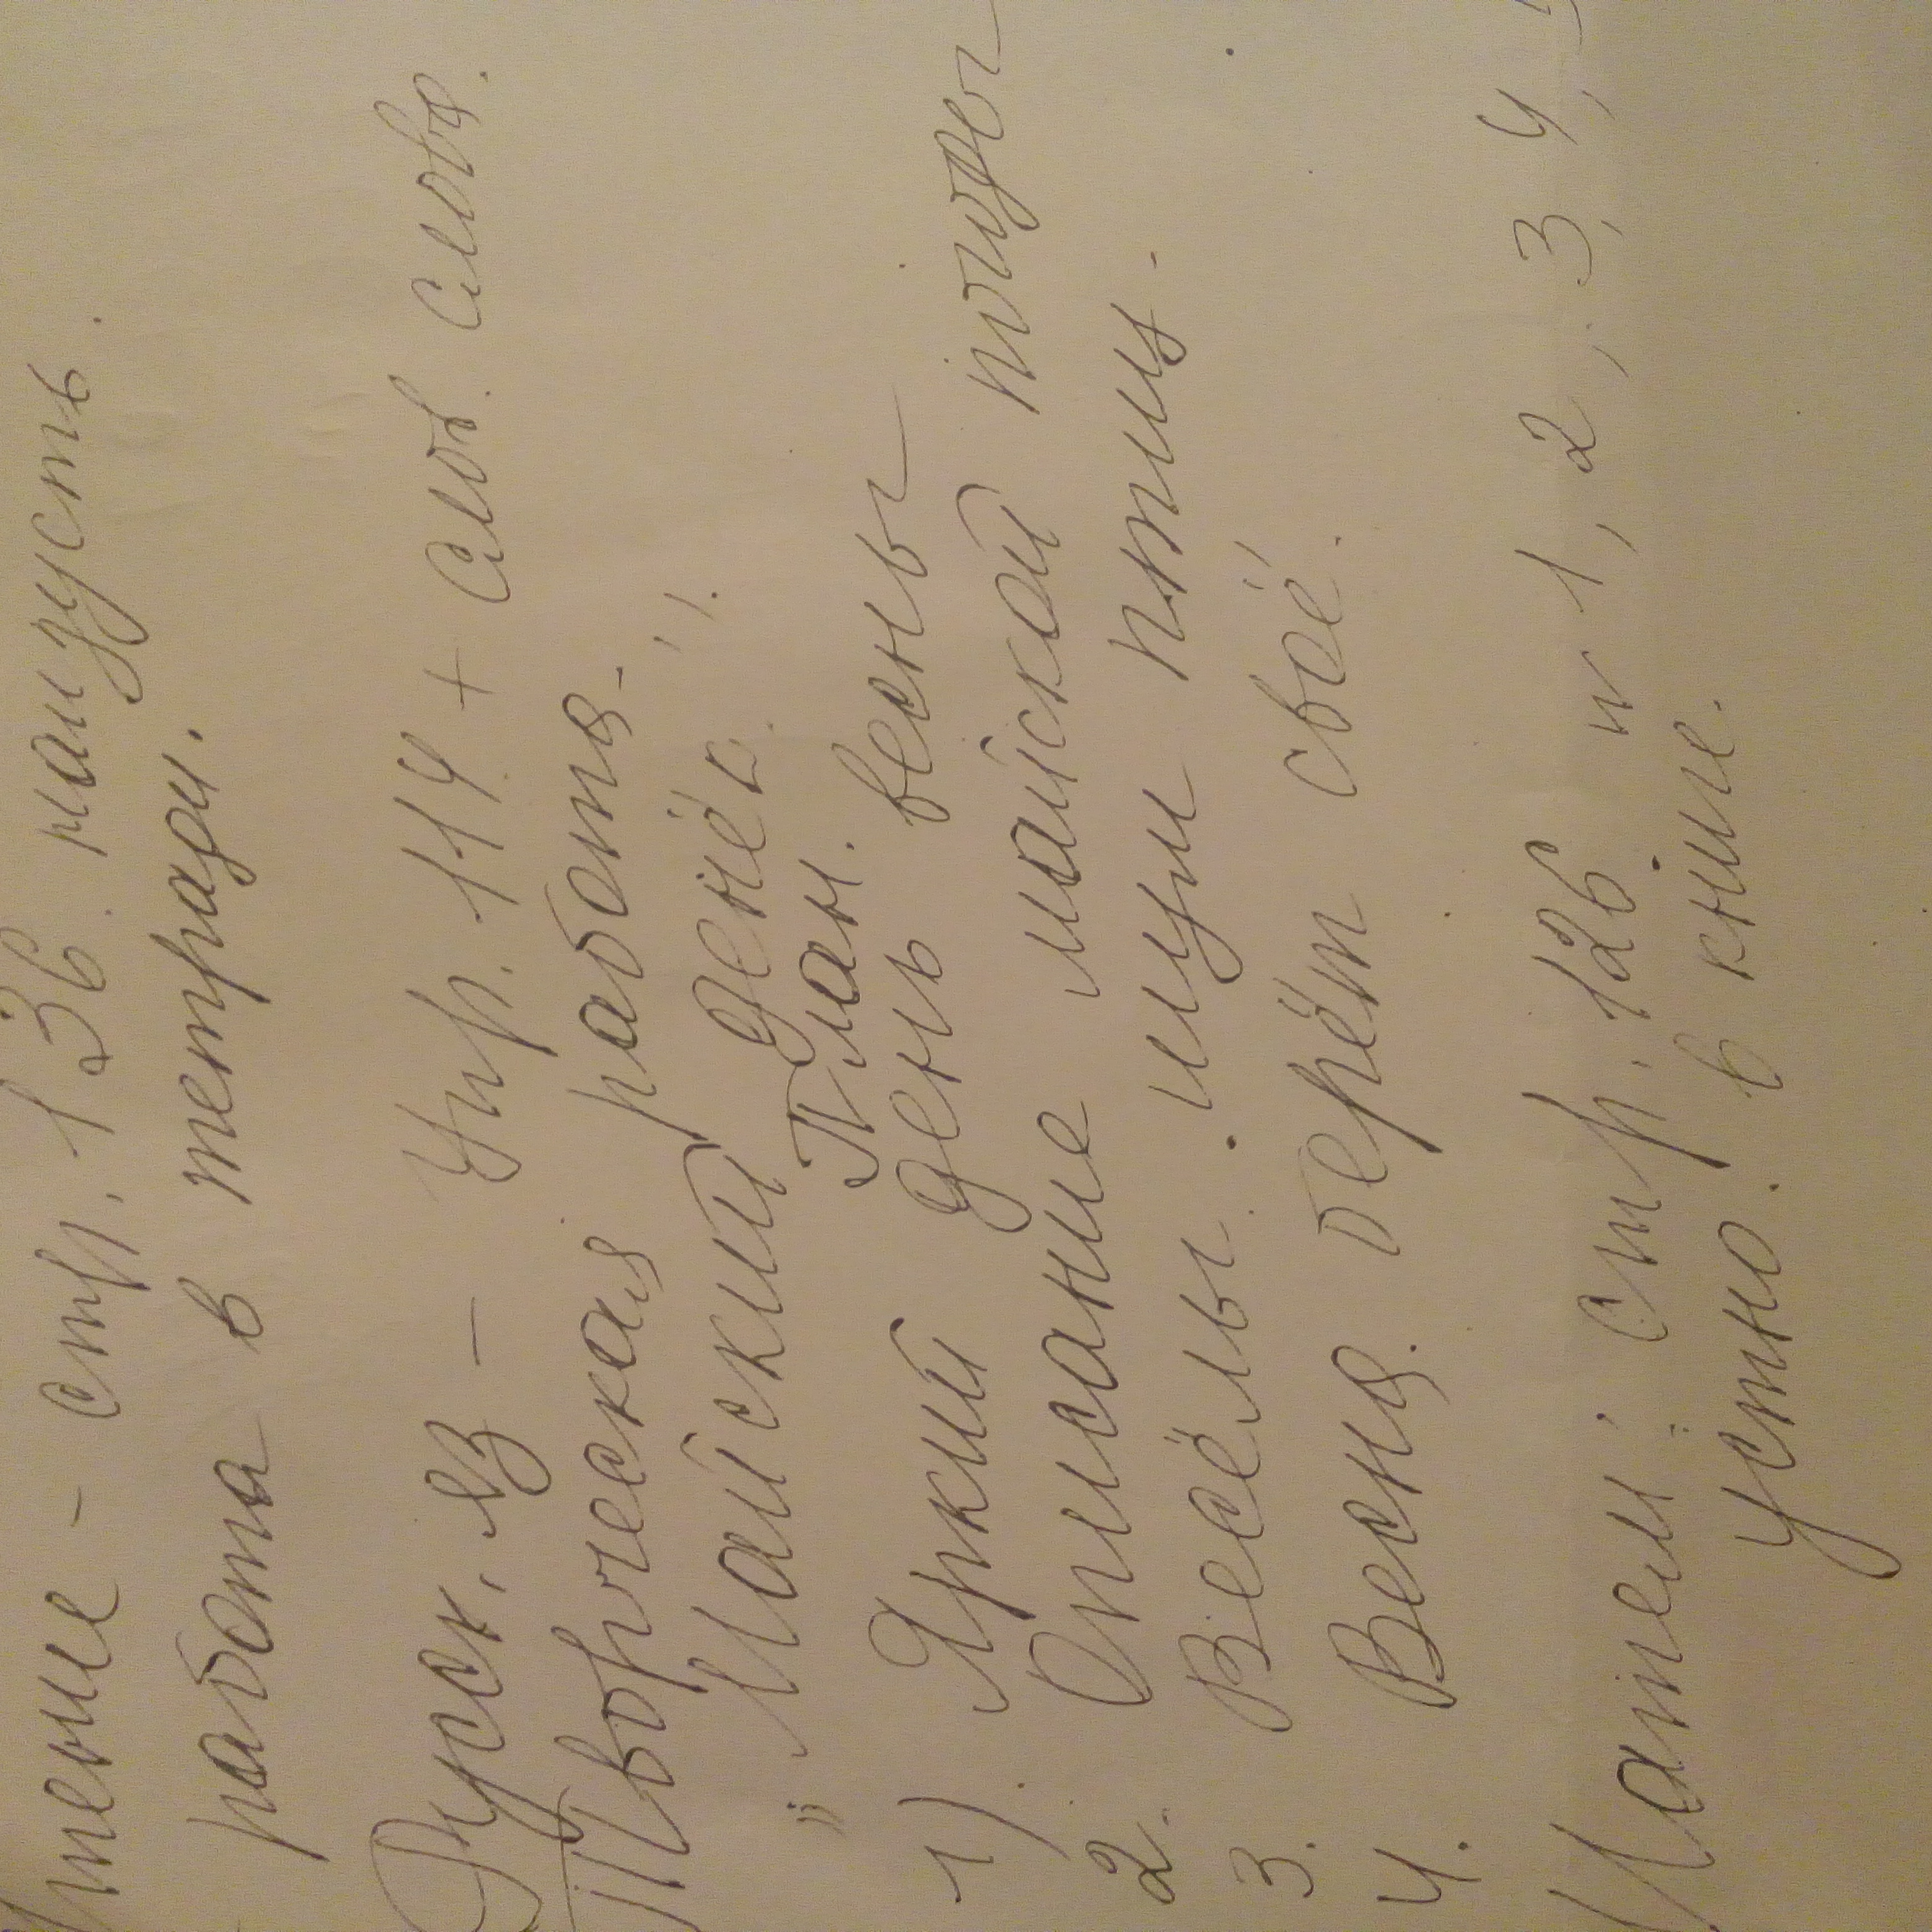 Чтение - стр. 136 наизусть.
работа в тетради.
Русск. яз - Упр. 114 + слов. слова.
Творческая работа -
"Майский денёк".
План.
1) Яркий день весны
2. Описание майской погоды
3. Весёлы птиц.
4. Весна берёт своё.
Матем: стр. 126 № 1, 2, 3, 4,
устно в книге.